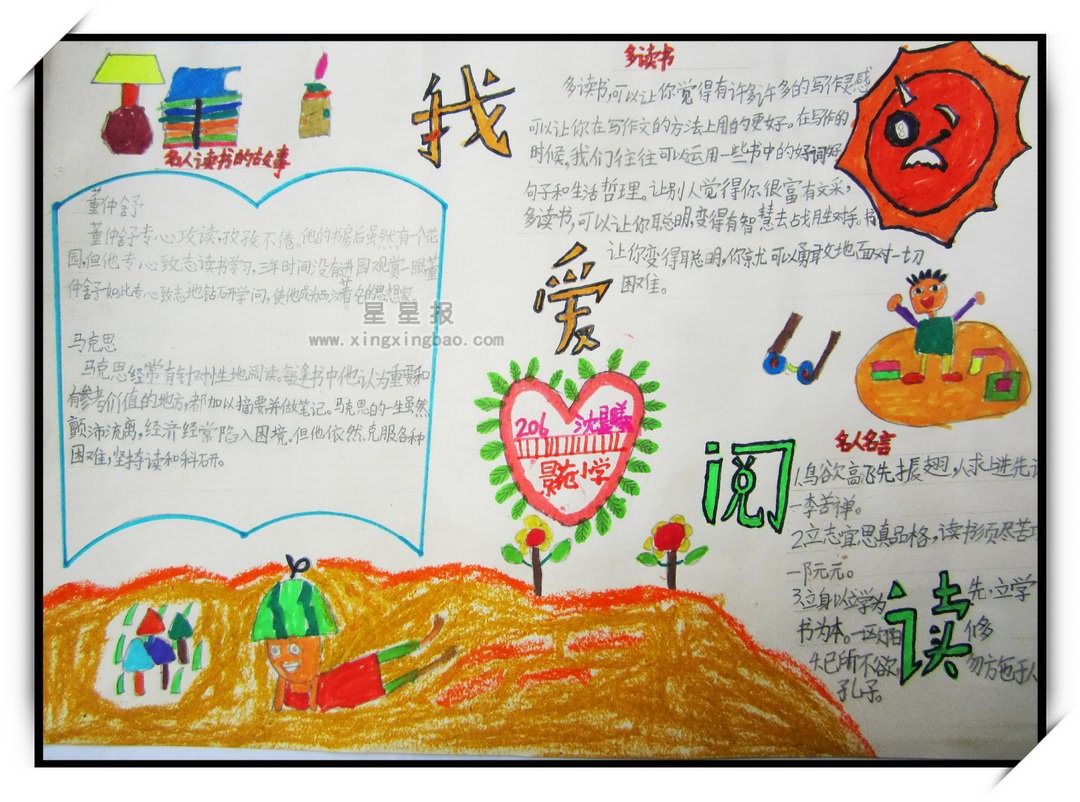 名人读书的故事
董仲舒
董仲舒专心攻读，孜孜不倦。他的书房后虽然有一个花
园，但他专心致志读书学习，三年时间没有进园观赏一眼，董
仲舒如此专心致志地钻研学问，使他成为西汉著名的思想家。
马克思
马克思经常有针对性地阅读，每逢书中他认为重要和
有参考价值的地方，都加以摘要并做笔记。马克思的一生虽然
颠沛流离，经济经常陷入困境，但他依然克服各种
困难，坚持读和科研。
星星报
www.xingxingbao.com
我
爱
阅
读
多读书
多读书，可以让你觉得有许多许多的写作灵感
可以让你在写作文的方法上用的更好。在写作的
时候，我们往往可以运用一些书中的好词好
句子和生活哲理。让别人觉得你很富有文采，
多读书，可以让你聪明，变得有智慧去战胜对手。书
让你变得聪明，你就可以勇敢地面对一切
困难。
8
206
小学
名人名言
1.鸟欲高飞先振翅，人求上进先读
—李苦禅。
2.立志宜思真品格，读书须尽苦功
—阮元。
3.立身以立学为先，立学
书为本。—欧阳修
4.己所不欲，勿方包于人
孔子。